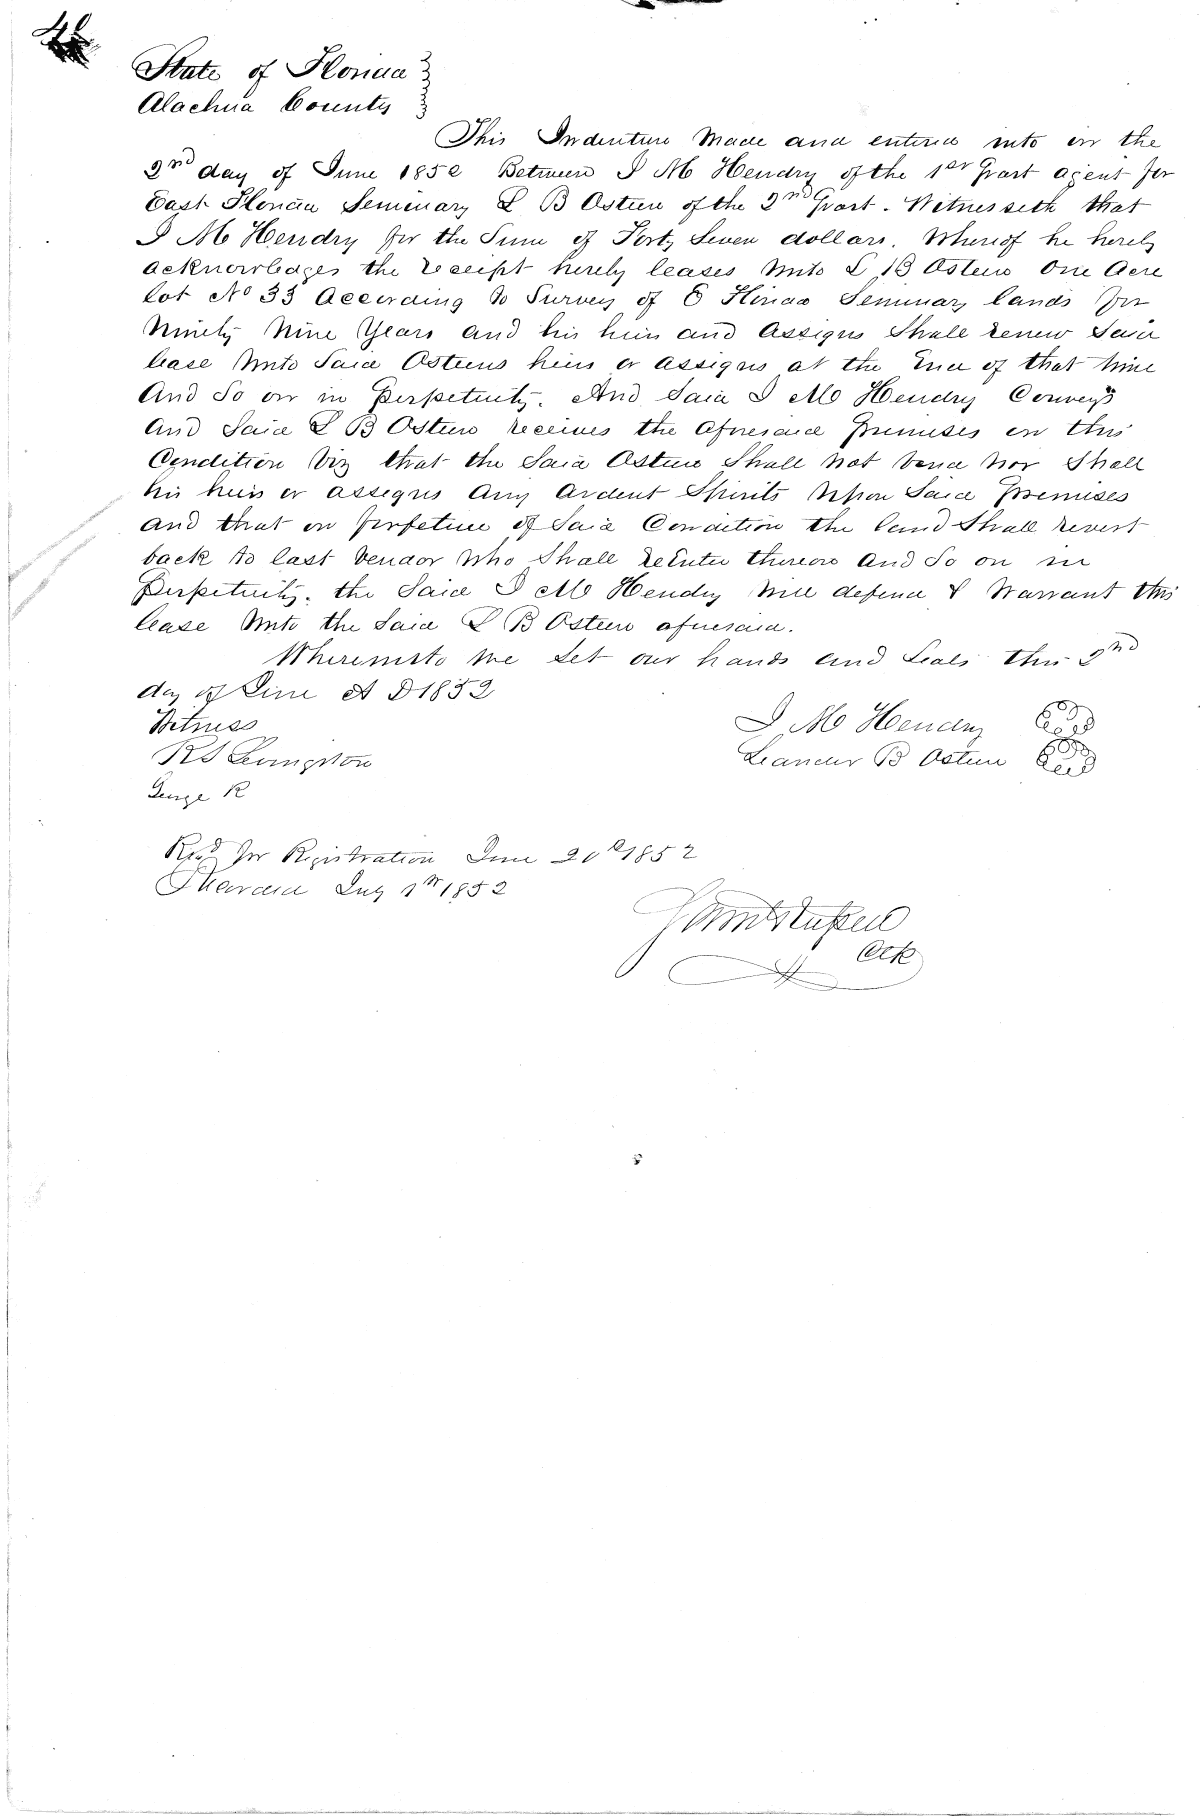 State of Florida
Alachua County
This Indenture Made and entered into on the
2nd day of June 1852 Between I M Hendry of the 1st Part agent for
East Florida Seminary L B Osteen of the 2nd Part. Witnesseth that
I M Hendry for the Sum of Forty Seven dollars. Whereof he hereby
acknowledges the receipt hereby leases unto L B Osteen One Acre
Lot No 33 According to Survey of E Florida Seminary lands for
Ninety Nine Years and his heirs and assigns Shall renew Said
lease Unto Said Osteens heirs or assigns at the End of that time
And So on in Perpetuity. And Said I M Hendry Conveys
And Said L B Osteen receives the aforesaid Premises on this
Condition Viz that the Said Osteen Shall not vend nor Shall
his heirs or assigns any ardent Spirits Upon Said Premises
and that on forfeture of Said Condition the land Shall revert
back to last Vendor who Shall reEnter thereon and So on in
Perpetuity. the Said I M Hendry will defend & Warrant this
lease Unto the Said L B Osteen aforesaid.
Whereunto we Set our hands and Seals this 2nd
day of June A D 1852
Witness
I M Hendry Seal
R S Livingston
Leander B Osteen Seal
George R
Recd for Registration June 20th 1852
Recorded July 1st 1852
Clk